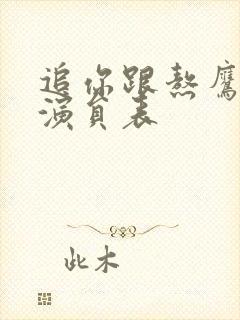 追你跟熬鹰
演员表
此木